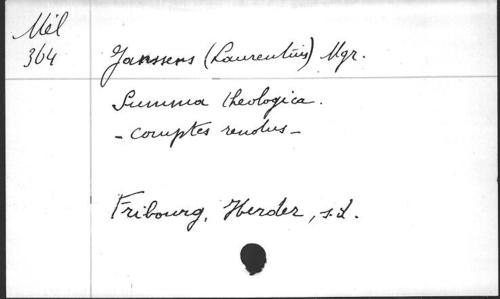 Mél
364
Janssens (Laurentius) Mgr.
Summa theologica.
- comptes rendus -
Fribourg, Herder, s.d.